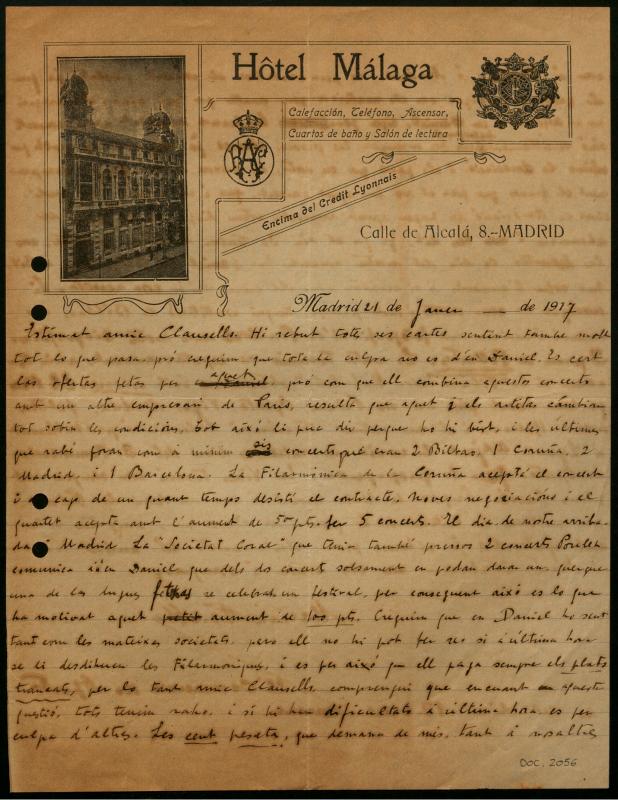 Hôtel Málaga
Calefacción, Teléfono, Ascensor,
Cuartos de baño y Salón de lectura
Encima del Credit Lyonnais
Calle de Alcalá, 8.-MADRID
Madrid 21 de Janer de 1917
Estimat amic Clausells. Hi rebut totes ses cartes sentint també molt
tot lo que pasa, pró creguim que tota la culpa no es d'én Daniel. Es cert
las ofertas fetas per aquet pró com que ell combina aquestos concerts
amb un altre empresari de Paris, resulta que aquet i els artistas cambian
tot sobin las condicións. Tot aixó li puc dir perque ho hi vist, i les últimes
que rabé foran com á minim sis concerts que eran 2 Bilbao, 1 Coruña, 2
Madrid, i 1 Barcelona. La Filarmónica de la Coruña aceptá el concert
i cap de un quant temps desistí el contracte. Noves negociacions i el
quartet acepta amb l'aument de 50 pts. per 5 concerts. El dia de nostre arriba-
da á Madrid la "Societat Coral" que tenia també presos 2 concerts
comunica á'en Daniel que dels dos concert solsament en podan darā un perque
una de las fetxas se celebrab un festival, per conseguent aixó es lo que
ha motivat aquet petit aument de 100 pts. Creguim que en Daniel ho sent
tant com les mateixes societats, pero ell no hi pot fer res si á última hora
se li desdiuen les Filarmoniques, i es per aixó que ell paga sempre els plats
trancats, per lo tant amic Clausells, comprengui que encuant an aqueste
questió, tots tenim raho, i si hi han dificultats á última hora es per
culpa d'altres. Les cent pesetas, que demana de més, tant á nosaltres
DOC. 2056